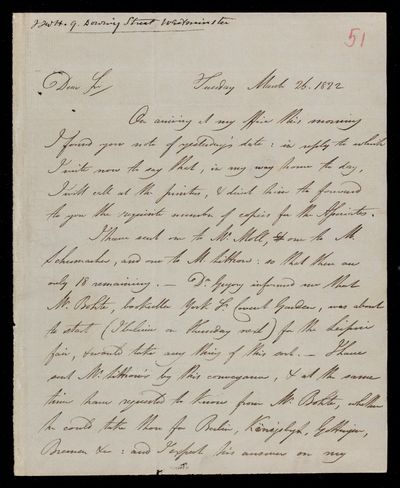 J.F.W.H. 9. Downing Street Westminster
51
Dear Sir, Tuesday March 26. 1822
On arriving at my office this morning
I found your note of yesterday's date: in reply to which
I write now to say that, in my way home to day,
I will call at the printer, & direct him to forward
to you the requisite number of copies for the Associates.
I have sent one to Mr. Moll, one to Mr.
Schumacher, and one to M. Littrow: so that there are
only 18 remaining. — Dr. Gregory informed me that
Mr. Bohte, bookseller York St. Covent Garden, was about
to start (I believe on Thursday next) for the Leipsic
fair, & would take any thing of this sort. — I have
sent Mr. Littrow's by this conveyance, & at the same
time have requested to know from Mr. Bohte, whether
he could take them for Berlin, Königsbgh, Gottingen,
Bremen &c: and I expect his answer on my